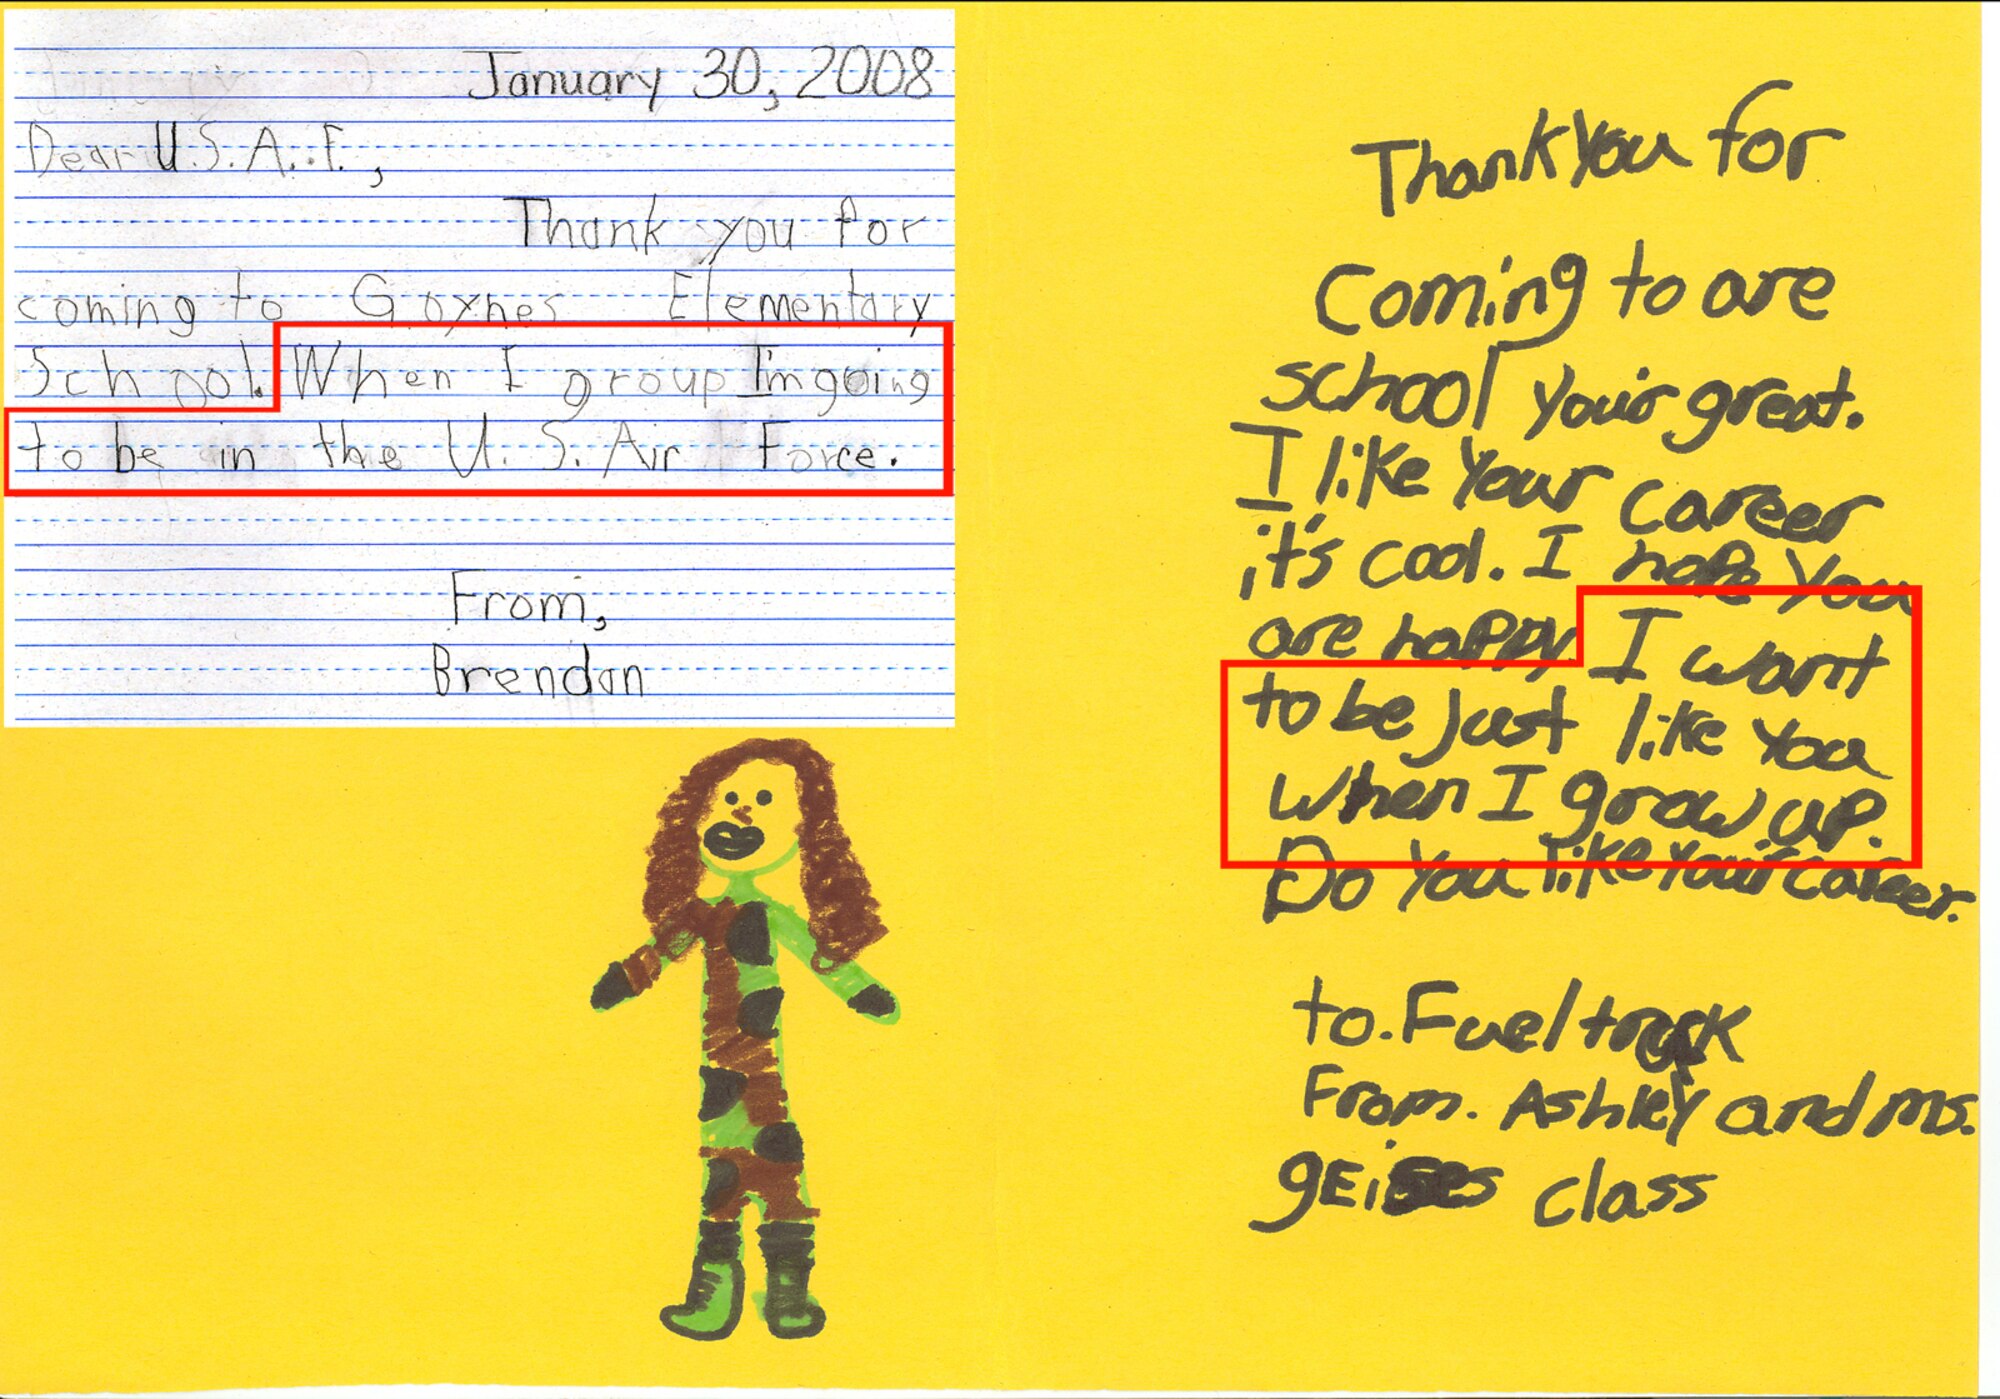 January 30, 2008
Dear U.S.A.F.,
Thank you for
coming to Goynes Elementary
School. When I group I'm going
to be in the U.S. Air Force.
From,
Brendan
Thank You for
Coming to are
school your great.
I like Your career
it's cool. I hope You
are happy I want
to be just like You
when I grow up.
Do You like Your career.
to. Fuel truck
From. Ashley and ms.
geises class